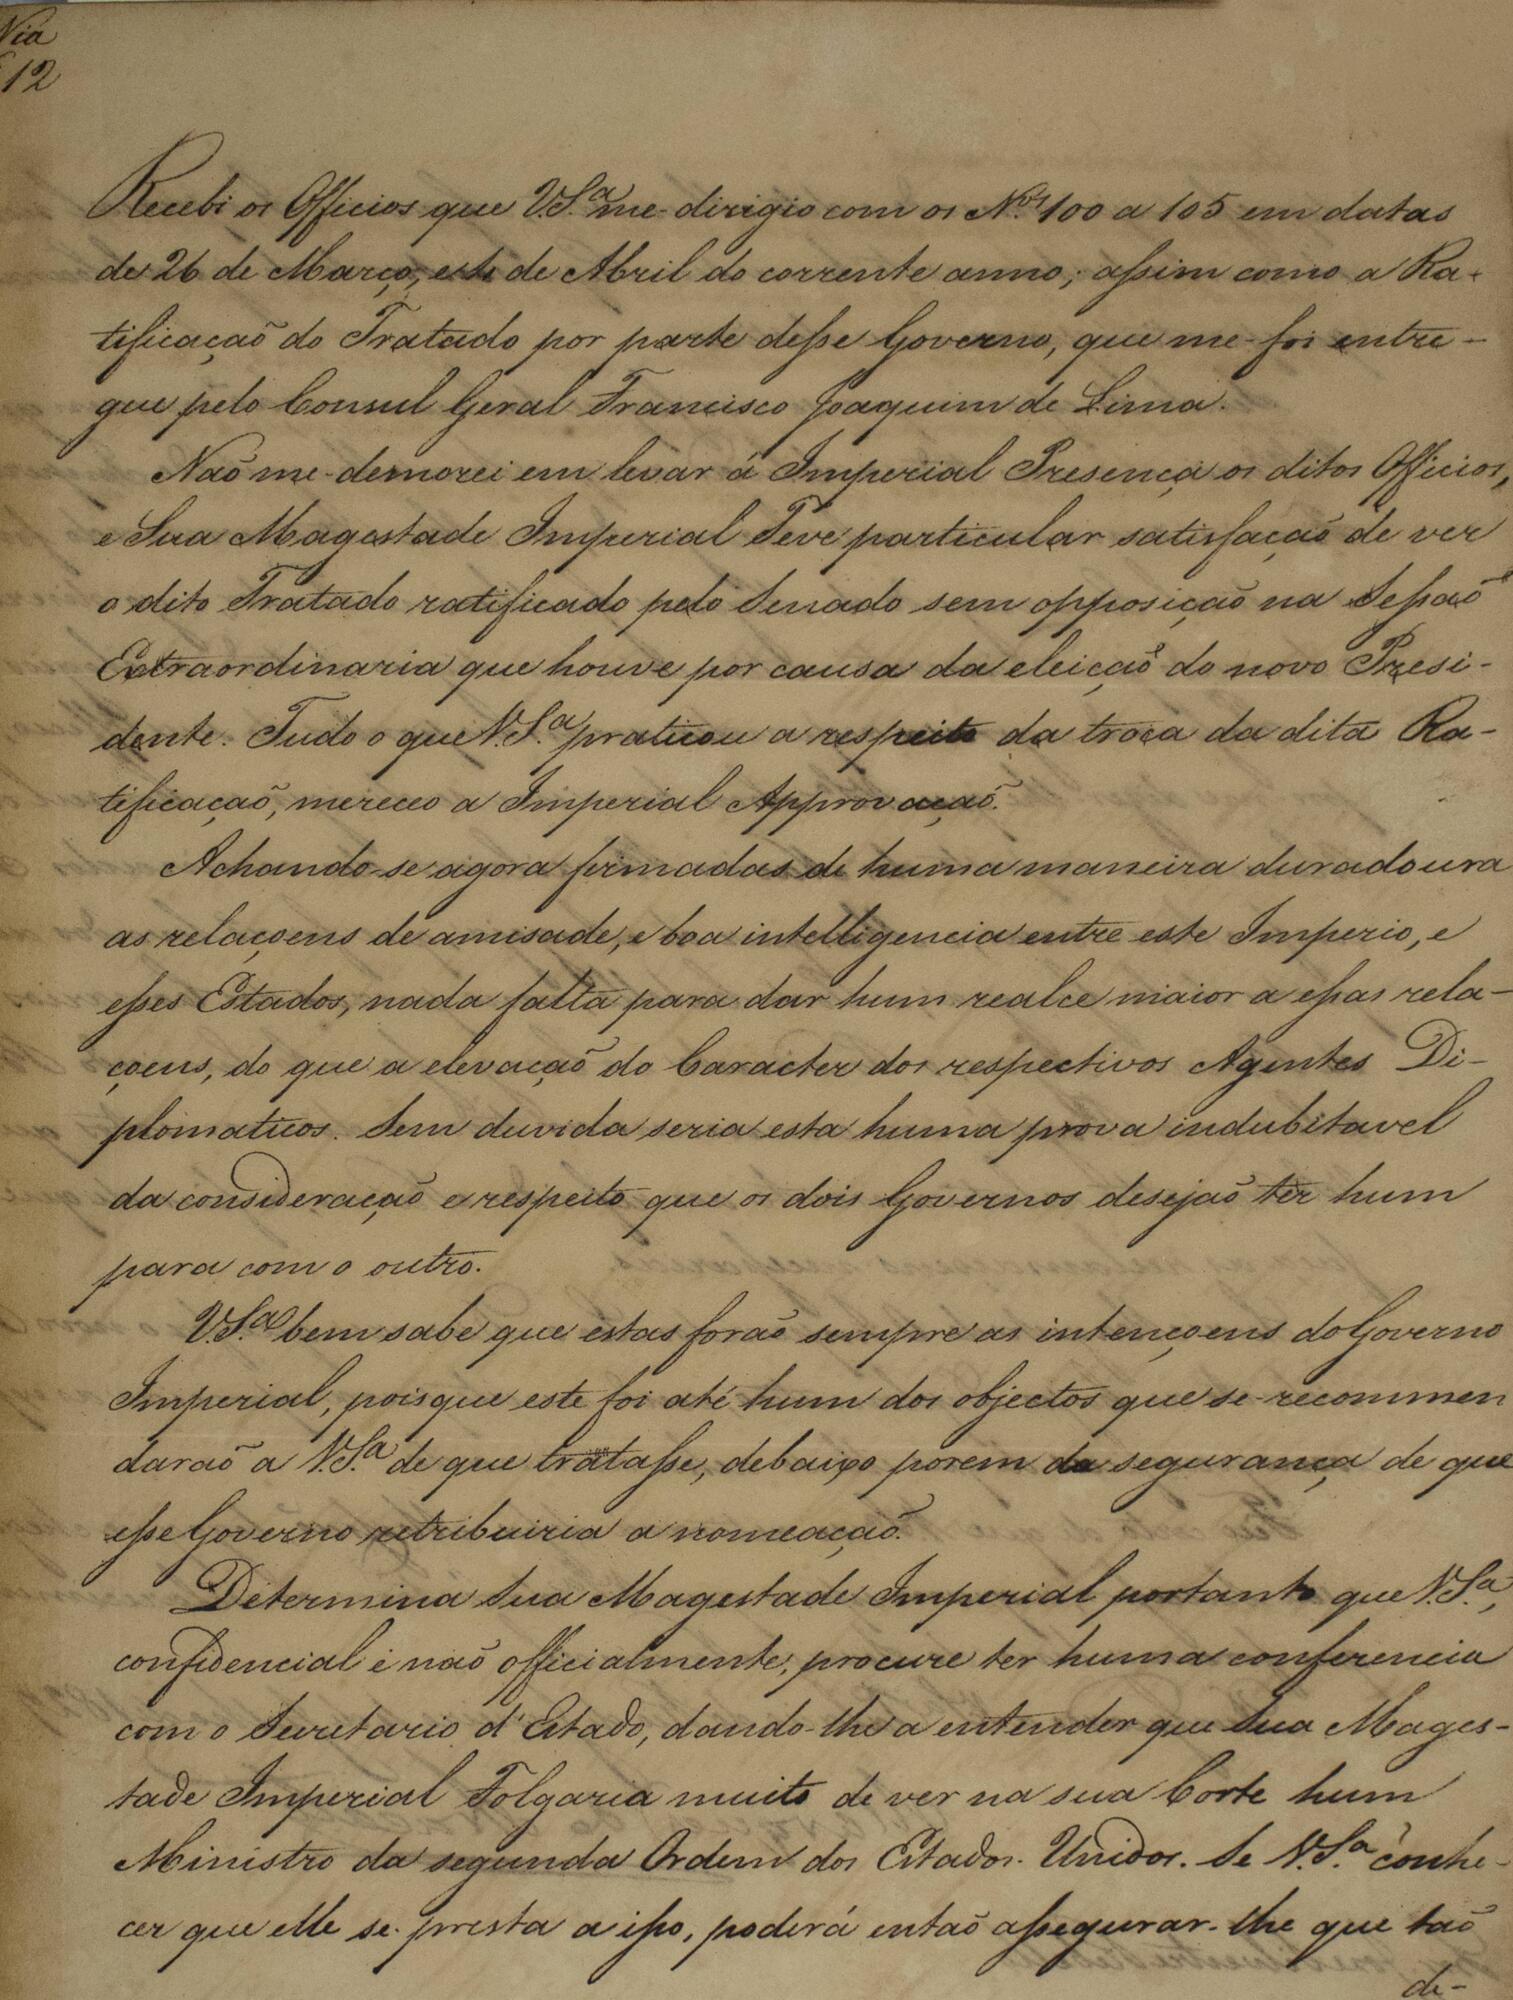 Via
12
Recebi os Officios que V.S.ª me-dirigio com os N.os 100 a 105 em datas
de 26 de Março, e de Abril do corrente anno; assim como a Ra-
tificação do Tratado por parte desse Governo, que me-foi entre-
gue pelo Consul Geral Francisco Joaquim de Lima.
Não me-demorei em levar á Imperial Presença os ditos Officios,
e Sua Magestade Imperial Teve particular satisfação de ver
o dito Tratado ratificado pelo Senado sem opposição na Sessão
Extraordinaria que houve por causa da eleição do novo Presi-
dente. Tudo o que V.S.ª praticou a respeito da troca da dita Ra-
tificação, mereceo a Imperial Approvação.
Achando-se agora firmadas de huma maneira duradoura
as relaçoens de amisade, e boa intelligencia entre este Imperio, e
esses Estados, nada falta para dar hum realce maior a essas rela-
çoens, do que a elevação do Caracter dos respectivos Agentes Di-
plomaticos. Sem duvida seria esta huma prova indubitavel
da consideração e respeito que os dois Governos desejão ter hum
para com o outro.
V.S.ª bem sabe que estas forão sempre as intençoens do Governo
Imperial, poisque este foi até hum dos objectos que se-recommen
darão a V.S.ª de que tratasse, debaixo porem da segurança de que
esse Governo retribuiria a nomeação.
Determina Sua Magestade Imperial portanto que V.S.ª,
confidencial e não officialmente, procure ter huma conferencia
com o Secretario d'Estado, dando-lhe a entender que Sua Mages-
tade Imperial Folgaria muito de ver na sua Corte hum
Ministro da segunda Ordem dos Estados-Unidos. Se V.S.ª conhe-
cer que elle se-presta a isso, poderá então assegurar-lhe que tão
de-